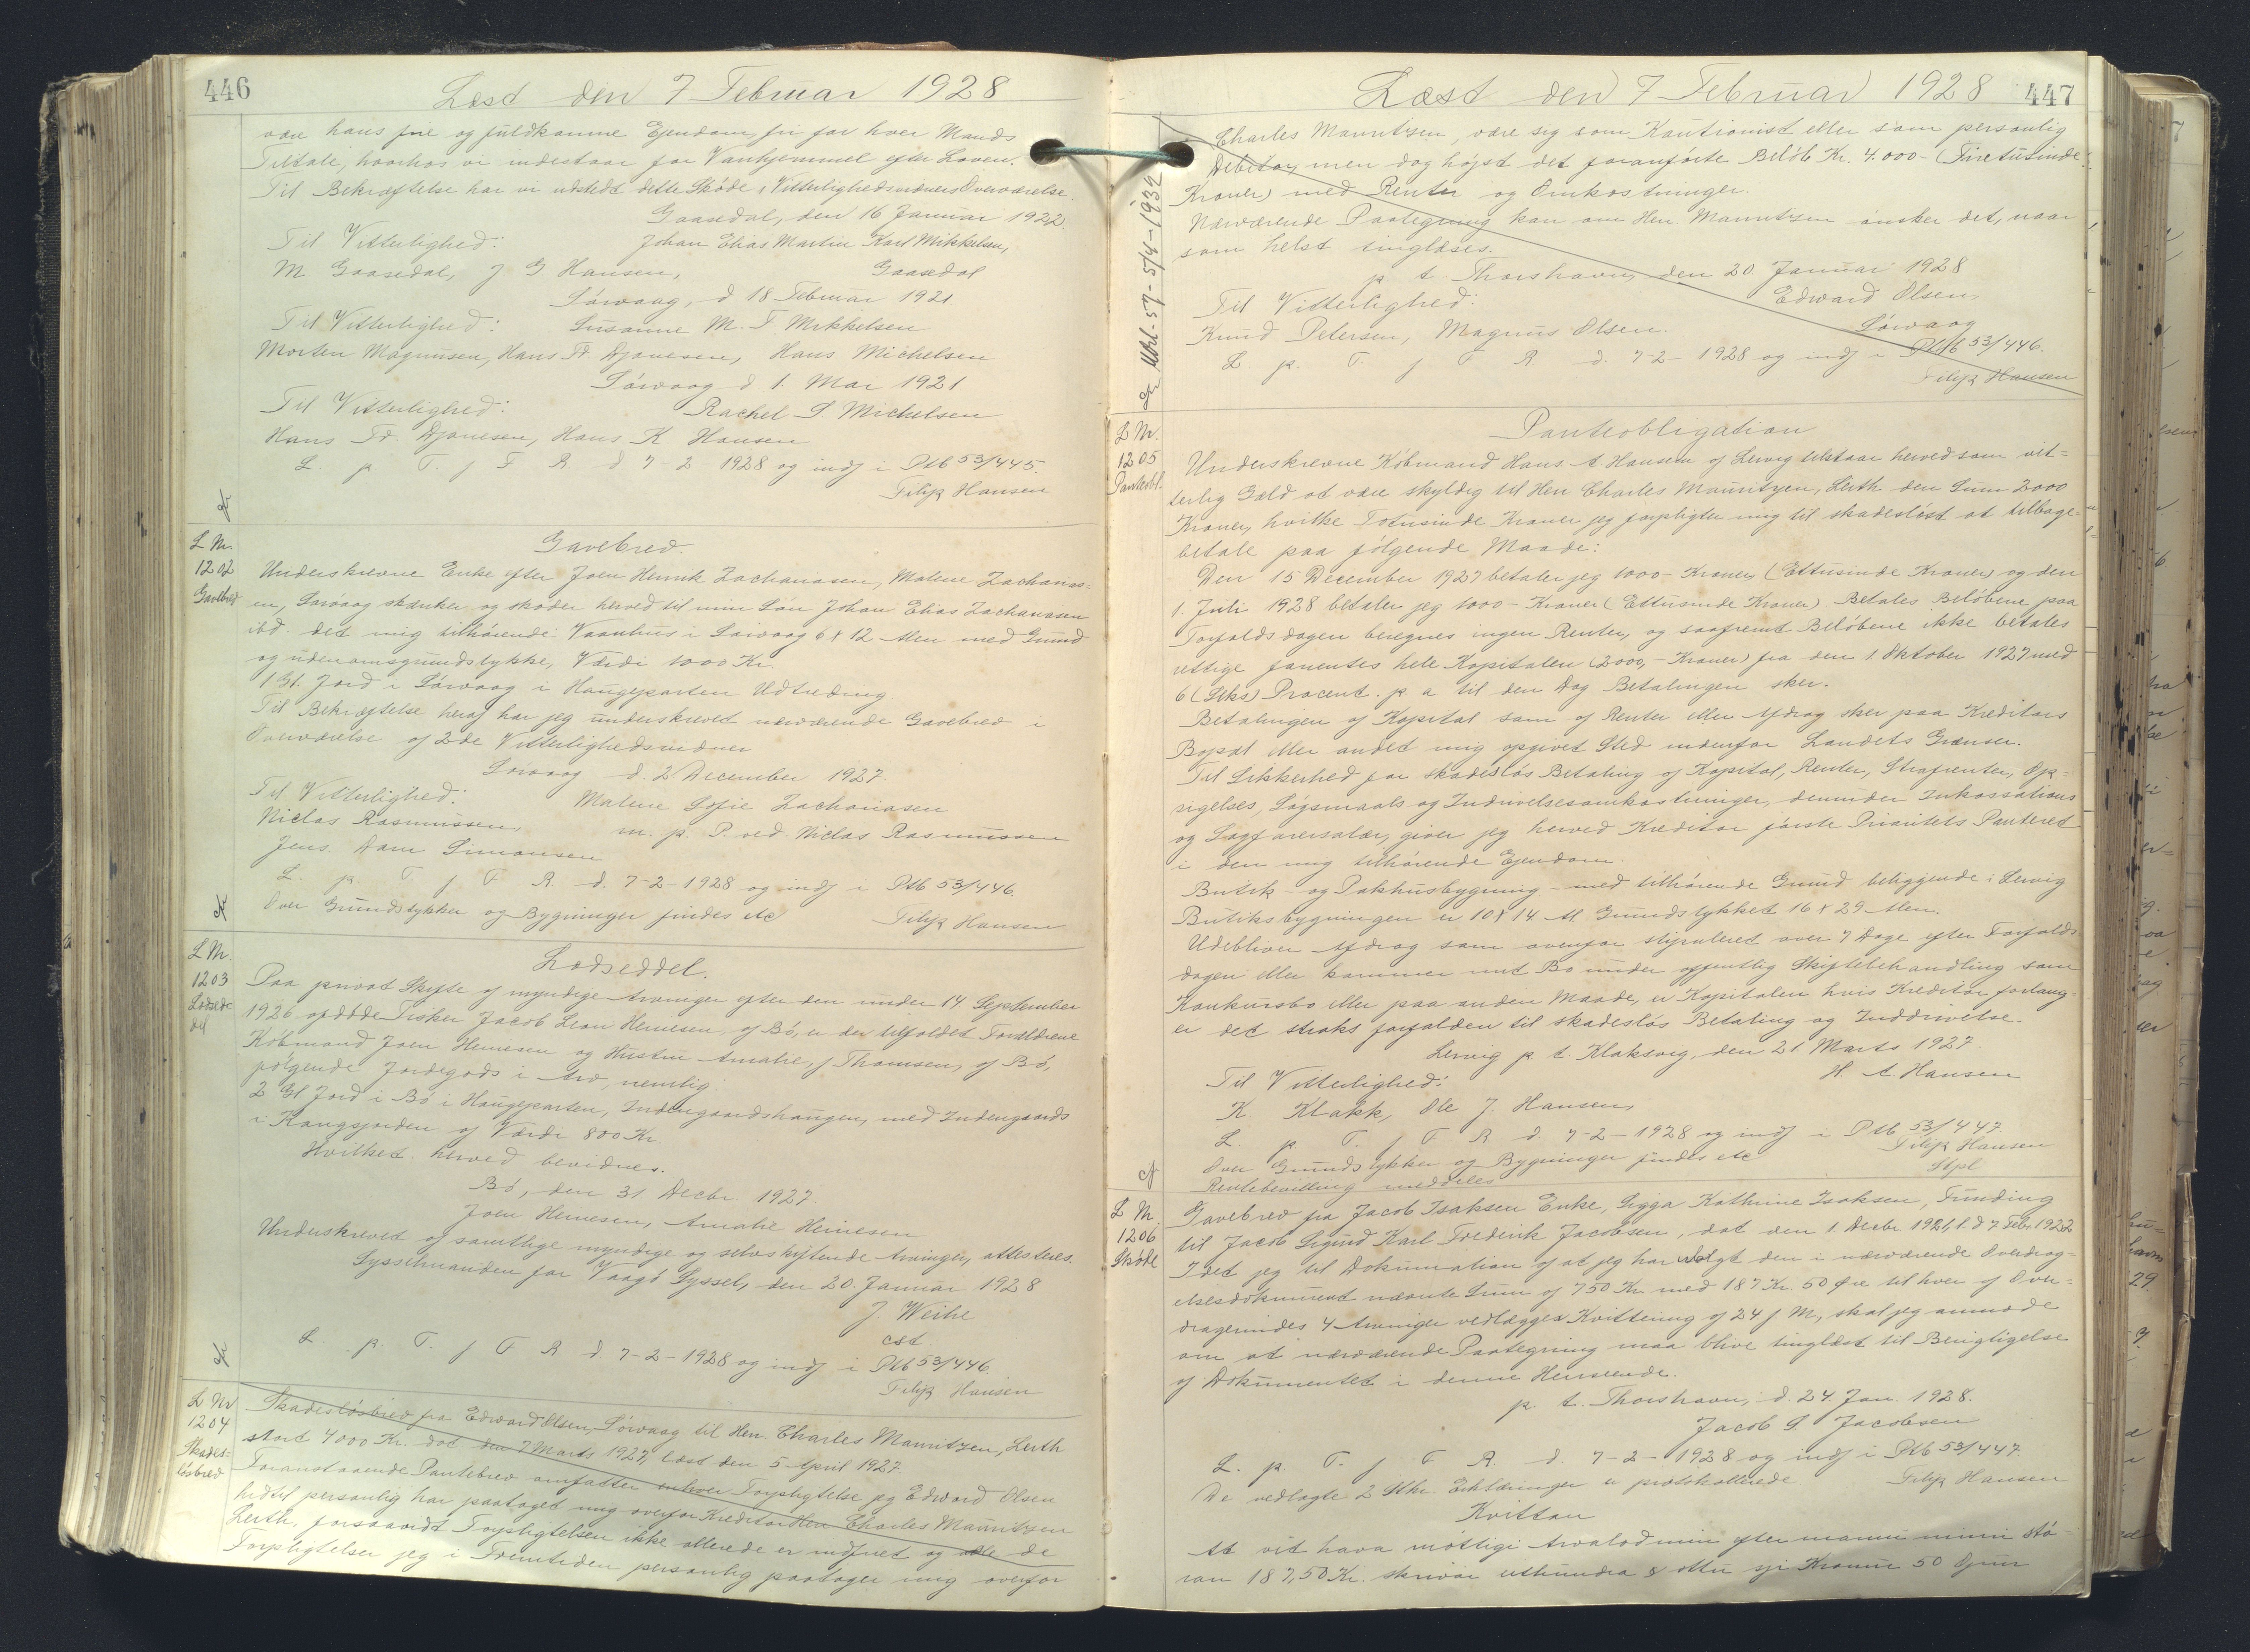 446
Læst den 7 Februar 1928
være hans frie og fuldkomne Ejendom, fri for hver Mands
Tiltale, hvorhos vi indestaar for Vanhjemmel efter Loven.
Til Bekræftelse har vi udstedt dette Skøde i Vitterlighedsvidners Overværelse.
Gaasedal, den 16 Januar 1922.
Til Vitterlighed: Johan Elias Martin Karl Mikkelsen,
M Gaasedal, J G Hansen, Gaasedal
Sórvaag, d 18 Februar 1921
Til Vitterlighed: Susanne M. F. Mikkelsen
Morten Magnusen, Hans Fr Djonesen, Hans Michelsen
Sórvaag d 1. Mai 1921
Til Vitterlighed: Rachel S Michelsen
Hans Fr. Djonesen, Hans K Hansen
L p T f F R d 7-2 1928 og indf i Ptb 53/445.
Filip Hansen
L Nr.
1202
Gavebrev
Gavebrev.
Underskrevne Enke efter Joen Henrik Zachariasen, Malene Zacharias=
en, Sórvaag skænker og skøder herved til min Són Johan Elias Zachariasen
ibd. det mig tilhórende Vaanhus i Sórvaag 6 x 12 Alen med Grund
og udenomsgrundstykke, Værdi 1000 Kr.
1 Gl. Jord i Sórvaag i Haugeparten Udtreding
Til Bekræftelse heraf har jeg underskrevet nærværende Gavebrev i
Overværelse af 2de Vitterlighedsvidner
Sórvaag d. 2 December 1927.
Til Vitterlighed: Malene Sofie Zachariasen
Niclas Rasmussen, m. p. P. ved Niclas Rasmussen
Jens Dam Simonsen
L. p. T. f F R. d. 7-2-1928 og indf i Ptb 53/446.
Over Grundstykker og Bygninger findes etc Filip Hansen
L Nr.
1203
Lodsed-
del
Lodseddel.
Paa privat Skifte af myndige Arvinger efter den under 14 September
1926 afdóde Fisker Jacob Leon Heinesen, af Bó, er der tilfaldet Forældrene
Kóbmand Joen Heinesen og Hustru Amalie, f Thomsen, af Bó,
fólgende Jordegods i Arv, nemlig:
2 Gl Jord i Bó i Haugeparten, Indengaardshaugen, med Indengaards
i Kongsjorden af Værdi 800 Kr.
Hvilket herved bevidnes.
Bó, den 31 Decbr. 1927.
Joen Heinesen, Amalie Heinesen
Underskrevet af samtlige myndige og selvskiftende Arvinger, attesteres.
Sysselmanden for Vaagó Syssel, den 20. Januar 1928
J. Weihe
cst
L. p. T. f F R d 7-2-1928 og indf i Ptb 53/446.
Filip Hansen
L Nr
1204
Skades=
lósbrev
Skadeslósbrev fra Edward Olsen, Sórvaag til Herr Charles Mauritzen, Leith
stort 4000 Kr. dat. den 7 Marts 1927, læst den 5 April 1927
Foranstaaende Pantebrev omfatter enhver Forpligtelse jeg Edward Olsen
hidtil personlig har paataget mig overfor Kreditor Herr Charles Mauritzen
Leith, forsaavidt Forpligtelsen ikke allerede er indfriet og alle de
Forpligtelser jeg i Fremtiden personlig paatager mig overfor
Læst den 7 Februar 1928 447
Charles Mauritzen, være sig som Kautionist eller som personlig
Debitor, men dog højst det foranfórte Belób Kr. 4.000- (Firetusinde
Kroner) med Renter og Omkostninger.
Nærværende Paategning kan om Herr Mauritzen ønsker det, naar
som helst tinglæses.
p. t. Thorshavn, den 20. Januar 1928
Til Vitterlighed: Edward Olsen,
Knud Petersen, Magnus Olsen. Sórvaag
L. p. T. f F R. d. 7-2-1928 og indf i Ptb 53/446.
Filip Hansen
5/4-1932
L Nr.
1205
Panteobl.
Panteobligation
Underskrevne Kóbmand Hans A Hansen af Lervig tilstaar herved som vit=
terlig Gæld at være skyldig til Herr Charles Mauritzen, Leith den Sum 2000
Kroner, hvilke Totusinde Kroner jeg forpligter mig til skadeslóst at tilbage-
betale paa fólgende Maade:
Den 15 December 1927 betaler jeg 1000- Kroner (Ettusinde Kroner) og den
1. Juli 1928 betaler jeg 1000- Kroner (Ettusinde Kroner). Betales Belóbene paa
Forfaldsdagen beregnes ingen Renter, og saafremt Belóbene ikke betales
rettige forrentes hele Kapitalen (2000,- Kroner) fra den 1. Oktober 1927 med
6 (Seks) Procent p. a til den Dag Betalingen sker.
Betalingen af Kapital som af Renter eller Afdrag sker paa Kreditors
Bopæl eller andet mig opgivet Sted indenfor Landets Grænser.
Til Sikkerhed for skadeslós Betaling af Kapital, Renter, Strafrenter, Op=
sigelses, Sógsmaals og Inddrivelsesomkostninger, derunder Inkassations
og Sagfórersalær, giver jeg herved Kreditor fórste Prioritets Panteret
i den mig tilhórende Ejendom.
Butik- og Pakhusbygning - med tilhórende Grund beliggende i Lervig
Butiksbygningen er 10 x 14 Al. Grundstykket 16 x 29 Alen.
Udebliver Afdrag som ovenfor stipuleret over 7 Dage efter Forfalds
dagen eller kommer mit Bo under offentlig Skiftebehandling som
Konkursbo eller paa anden Maade, er Kapitalen hvis Kreditor forlang-
er det straks forfalden til skadeslós Betaling og Inddrivelse.
Lervig p. t. Klaksvig, den 21. Marts 1927.
Til Vitterlighed: H. A. Hansen
K. Klakk, Ole J. Hansen,
L. p. T. f F R d. 7-2-1928 og indf i Ptb 53/447.
Over Grundstykker og Bygninger findes etc Filip Hansen
Rentebevilling meddeles Stpl
L Nr.
1206
Skøde
Gavebrev fra Jacob Isaksen Enke, Sigga Kathrine Isaksen, Funding
til Jacob Sigurd Karl Frederik Jacobsen, dat den 1. Decbr 1921, l. d 7 Febr 1922
Idet jeg til Dokumentation af at jeg har udlagt den i nærværende Overdrag-
elsesdokument nævnte Sum af 750 Kr med 187 Kr. 50 Øre til hver af Over=
dragerindes 4 Arvinger vedlægger Kvittering af 24 f M, skal jeg anmode
om at nærværende Paategning maa blive tinglæst til Berigtigelse
af Dokumentet i denne Henseende.
p. t. Thorshavn, d. 24. Jan. 1928.
Jacob S. Jacobsen
L. p. T. f F R. d. 7-2-1928 og indf i Ptb 53/447.
De vedlagte 2 Stkr. Erklæringer er protokollerede Filip Hansen
Kvittan
At vit hava móttigi Arvalod min eftir mammu mínu stó=
ran 187,50 Kr. skrivar etthundra & ottu sjei Krónur 50 Oyru